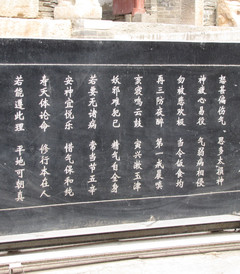 怒甚偏伤气 思多太损神
神疲心易役 气弱病相侵
勿被悲欢极 当令饭食均
再三防夜醉 第一戒晨嗔
亥寝鸣云鼓 寅兴漱玉津
妖邪难犯己 精气自全身
若要无诸病 常当节五辛
安神宜悦乐 惜气保和纯
寿夭休论命 修行本在人
若能遵此理 平地可朝真